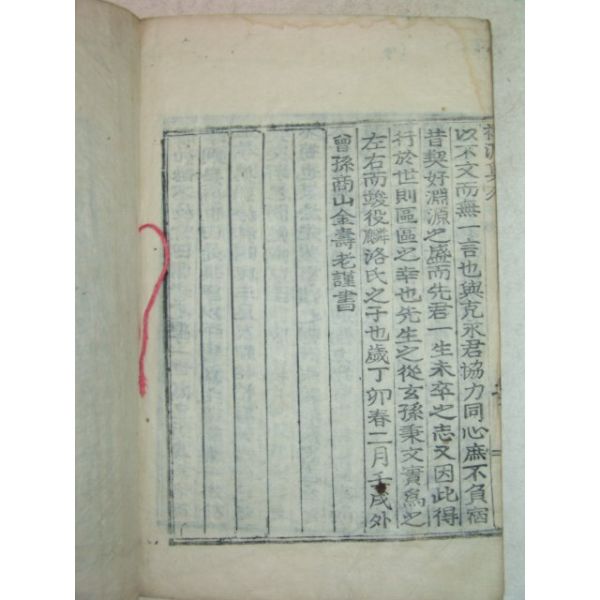 以不文而無一言也與克永君協力同心庶不負宿
昔契好淵源之盛而先君一生未卒之志又因此得
行於世則區區之幸也先生之從玄孫秉文實爲之
左右而董役麟洛氏之子也歲丁卯春二月壬戌外
曾孫商山金壽老謹書